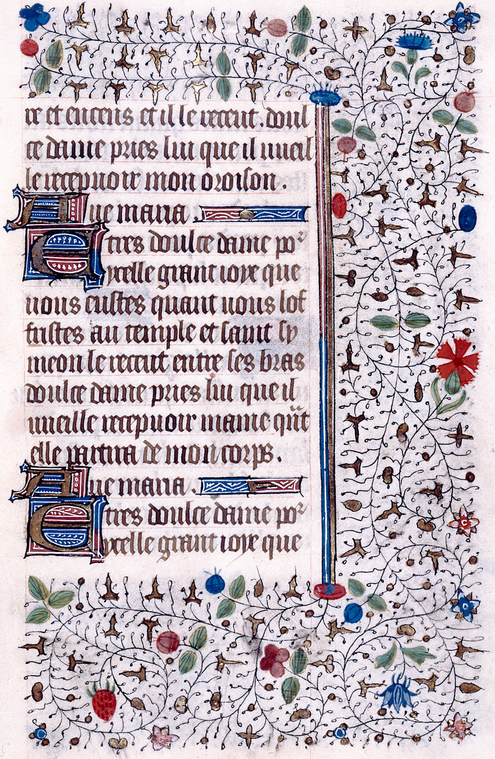 re et encens et il le recent. doul
ce dame pries lui que il uueil
le recepuoir mon oroison.
Aue maria.
E tres doulce dame po2
ycelle grant ioye que
uous eustes quant uous lof
fristes au temple et saint sy
meon le recent entre ses bras
doulce dame pries lui que il
uueille recepuoir mame qũt
elle partira de mon corps.
Aue maria.
E tres doulce dame po2
ycelle grant ioye que